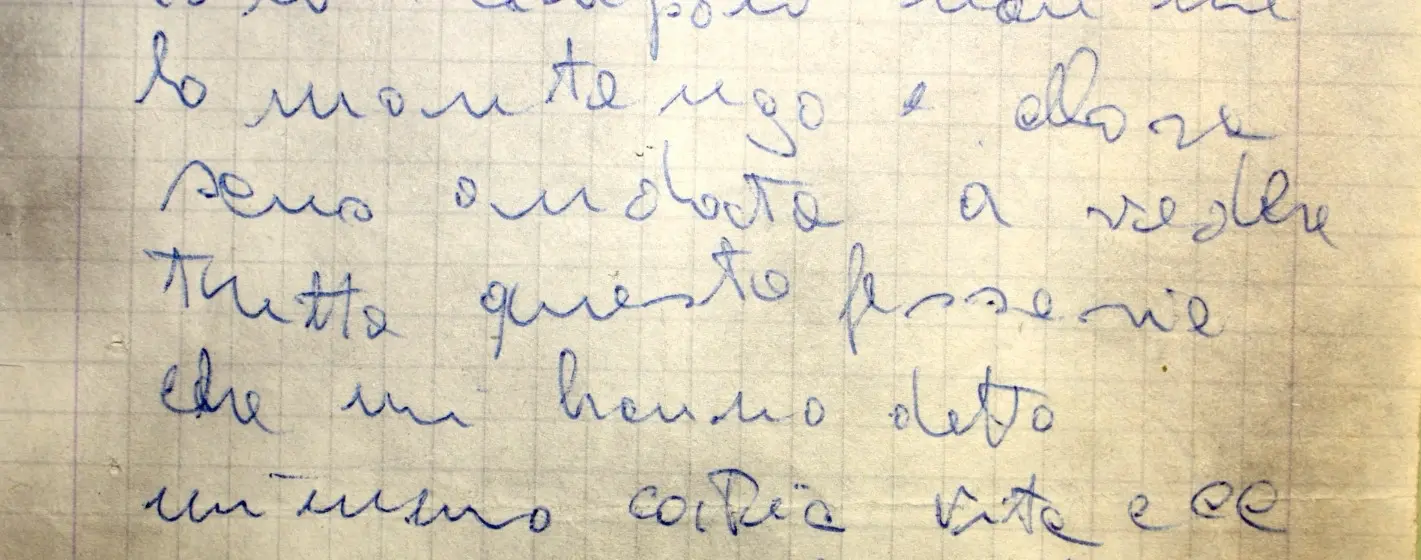 lo montengo e allora
seno andata a vedere
tutta questo fesserie
che mi hanno detto
minimo vita e